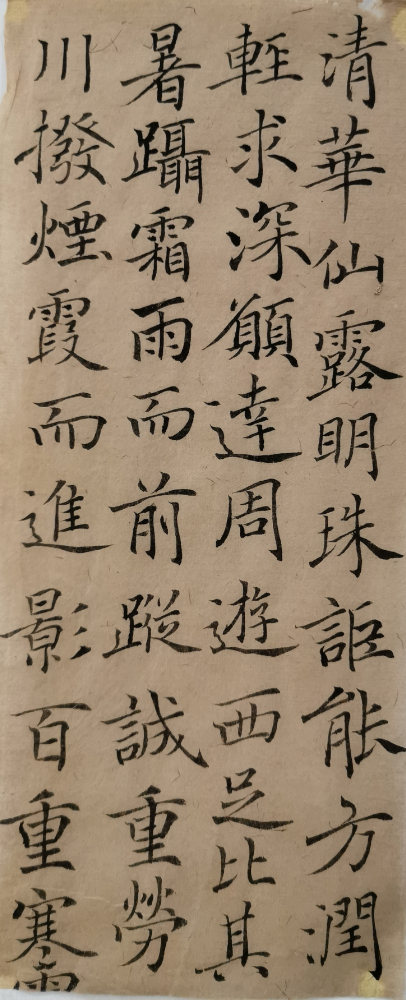 清華仙露明珠詎能方潤
輕求深願達周遊西足比其
暑躡霜雨而前蹤誠重勞
川撥煙霞而進影百重寒